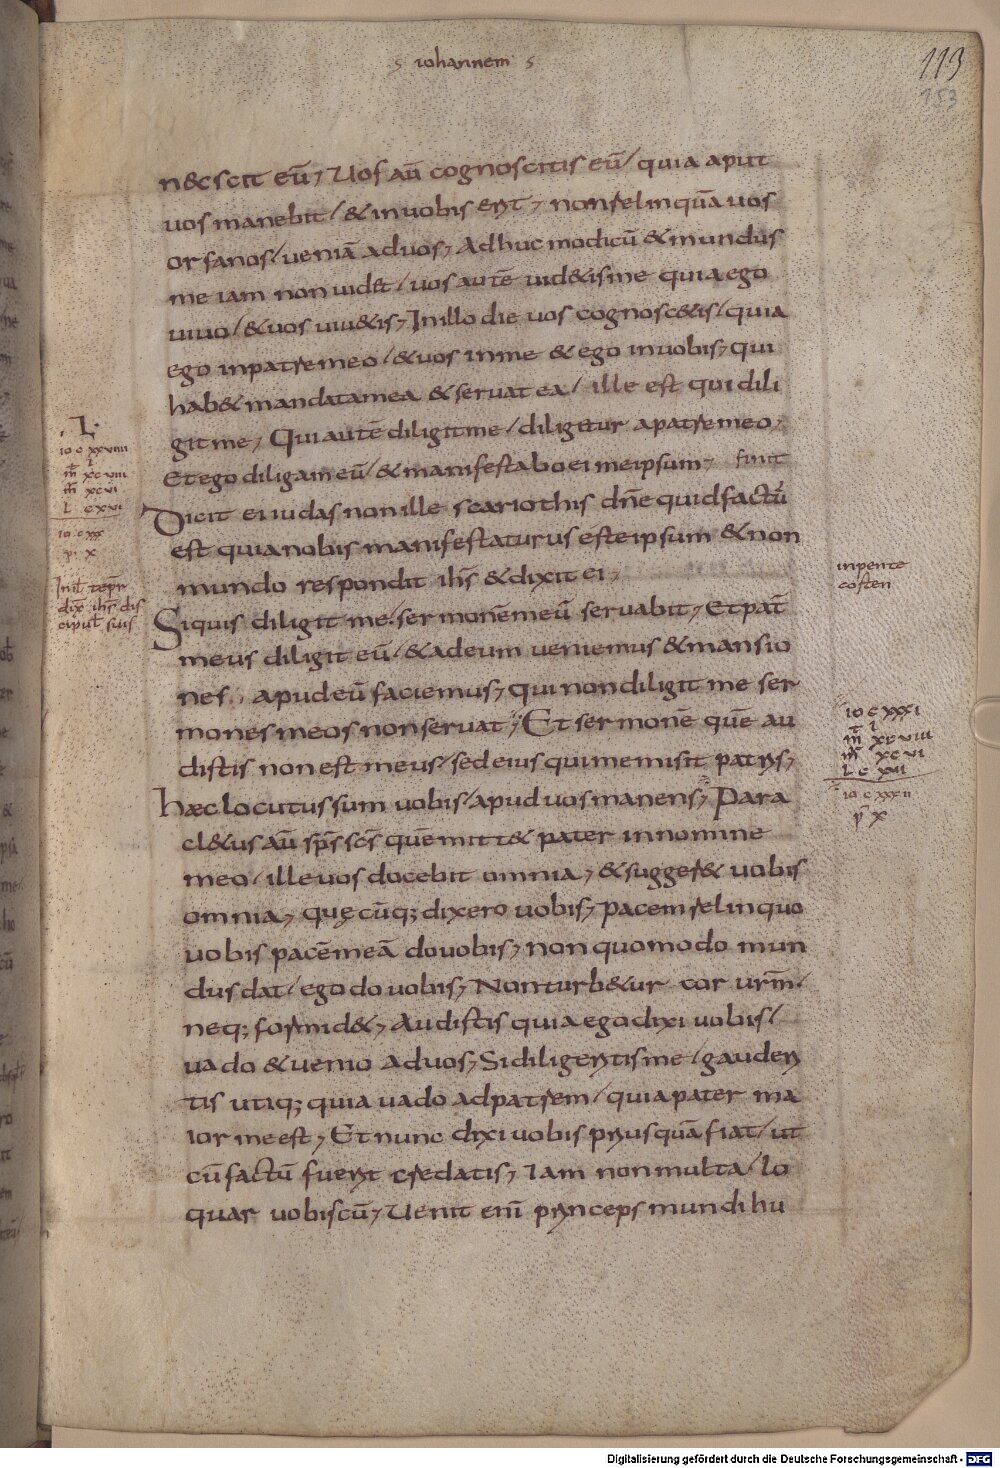 iohannem
113
153
n&scit eū, Uos aū cognoscitis eū / quia aput
uos manebit / & inuobis erit, nonrelinquā uos
orfanos / ueniā aduos, Adhuc modicū & mundus
me iam non uid& / uos autē uid&is me quia ego
uiuo / & uos uiu&is, Inillo die uos cognosc&is / quia
ego inpatremeo / & uos inme & ego inuobis, qui
hab& mandatamea & seruat ea / ille est qui dili
git me, Quiautē diligitme / diligetur apatremeo,
Etego diligameū / & manifestaboei meipsum, finit
Dicit ei iudas nonille scariothis dn̄e quidfactū
est quianobis manifestaturus esteipsum & non
mundo respondit ih̄s & dixit ei,
Siquis diligit me / sermonēmeū seruabit, Etpat̄
meus diligit eū / & adeum ueniemus & mansio
nes apudeū faciemus, quinondiligit me ser
mones meos nonseruat, Et sermonē quē au
distis nonest meus / sed eius quimemisit patris,
haec locutussum uobis / apud uosmanens, Para
cl&us aū sp̄s sc̄s quēmitt& pater innomine
meo / illeuos docebit omnia, & sugger& uobis
omnia, quęcūq; dixero uobis, pacem relinquo
uobis pacēmeā douobis, nonquomodo mun
dus dat / egodouobis, Nonturb&ur cor urm̄ /
neq; formid&, Audistis quiaegodixi uobis /
uado & uenio aduos, Sidiligeritisme / gauderi
tis utiq; quia uado adpatrem / quiapater ma
ior meest, Et nunc dixiuobis priusquā fiat / ut
cū factū fuerit credatis, Iam nonmulta / lo
quar uobiscū, Uenit eni princeps mundi hu
L
io c xxviiii
m̄ xcviii
m̄ xcvi
l cxvi
io cxx
p x
Inil tēpr
dix ih̄s dis
cipul suis
inpente
costen
io cxxxi
m̄ xcviii
m̄ xcvi
l c xvi
io cxxxii
p x
Digitalisierung gefördert durch die Deutsche Forschungsgemeinschaft - DFG